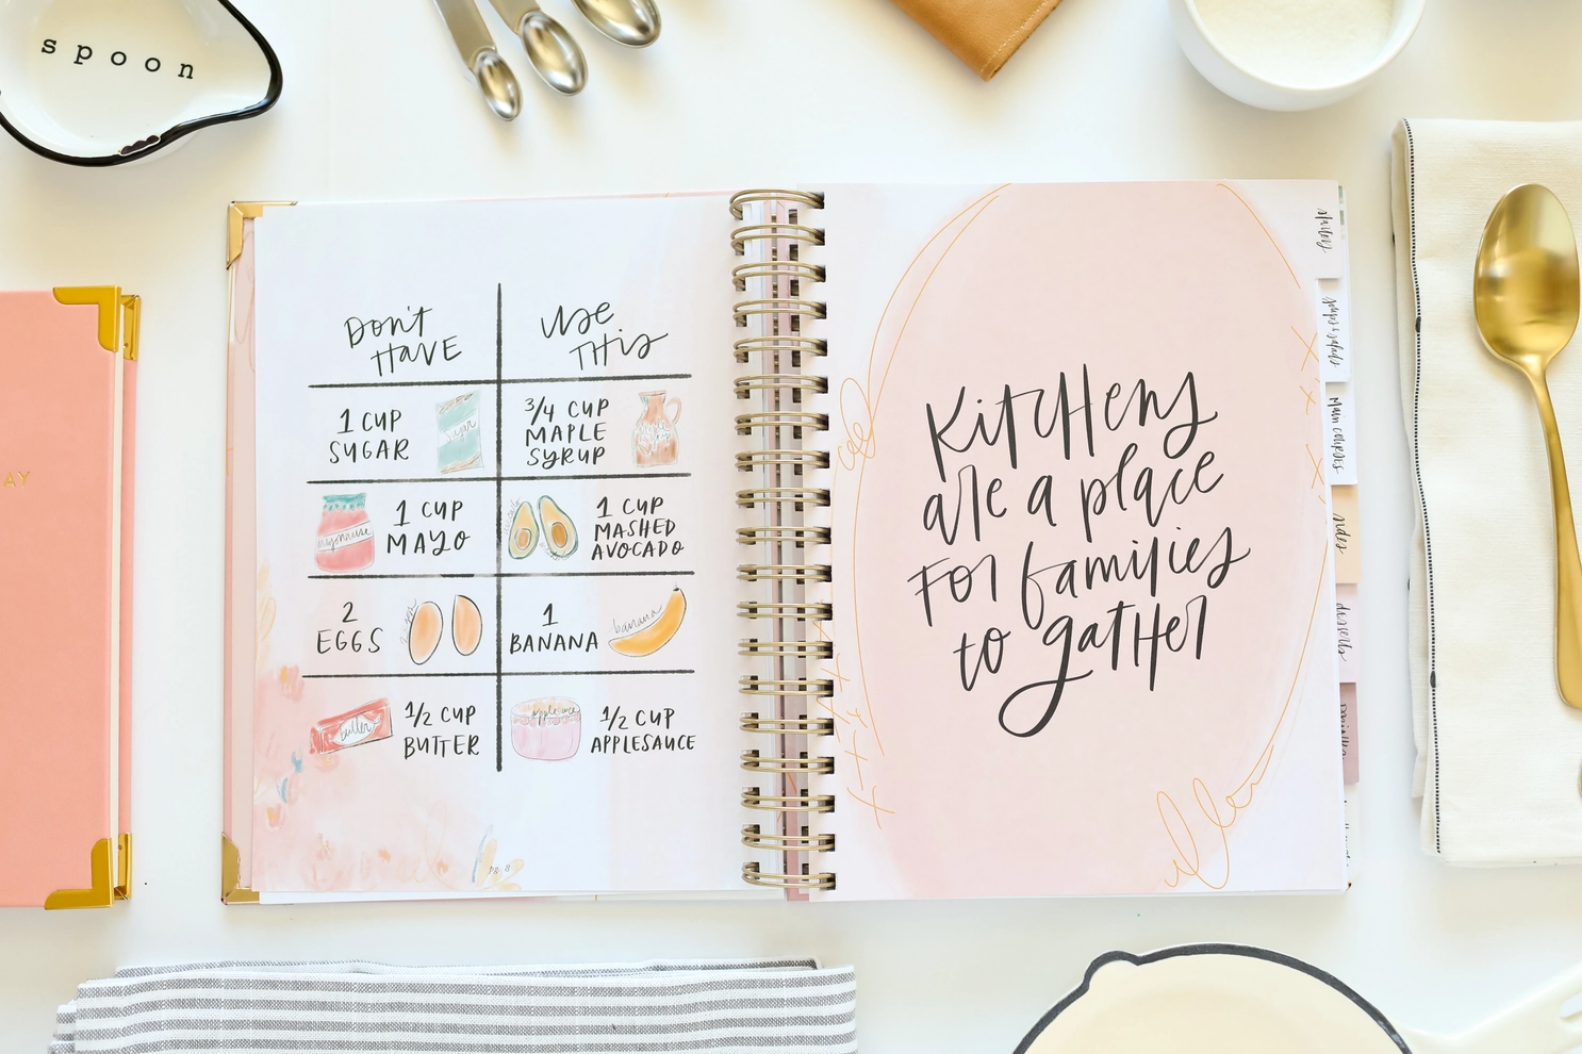 spoon
AY
Don't
Have
Use
This
1 CUP
SUGAR
Sugar
3/4 CUP
MAPLE
SYRUP
mayonnaise
1 CUP
MAYO
1 CUP
MASHED
AVOCADO
2
EGGS
1
BANANA
banana
butter
1/2 CUP
BUTTER
applesauce
1/2 CUP
APPLESAUCE
PG. 8
Kitchens
are a place
For families
to gather
soups & salads
main courses
sides
desserts
drinks